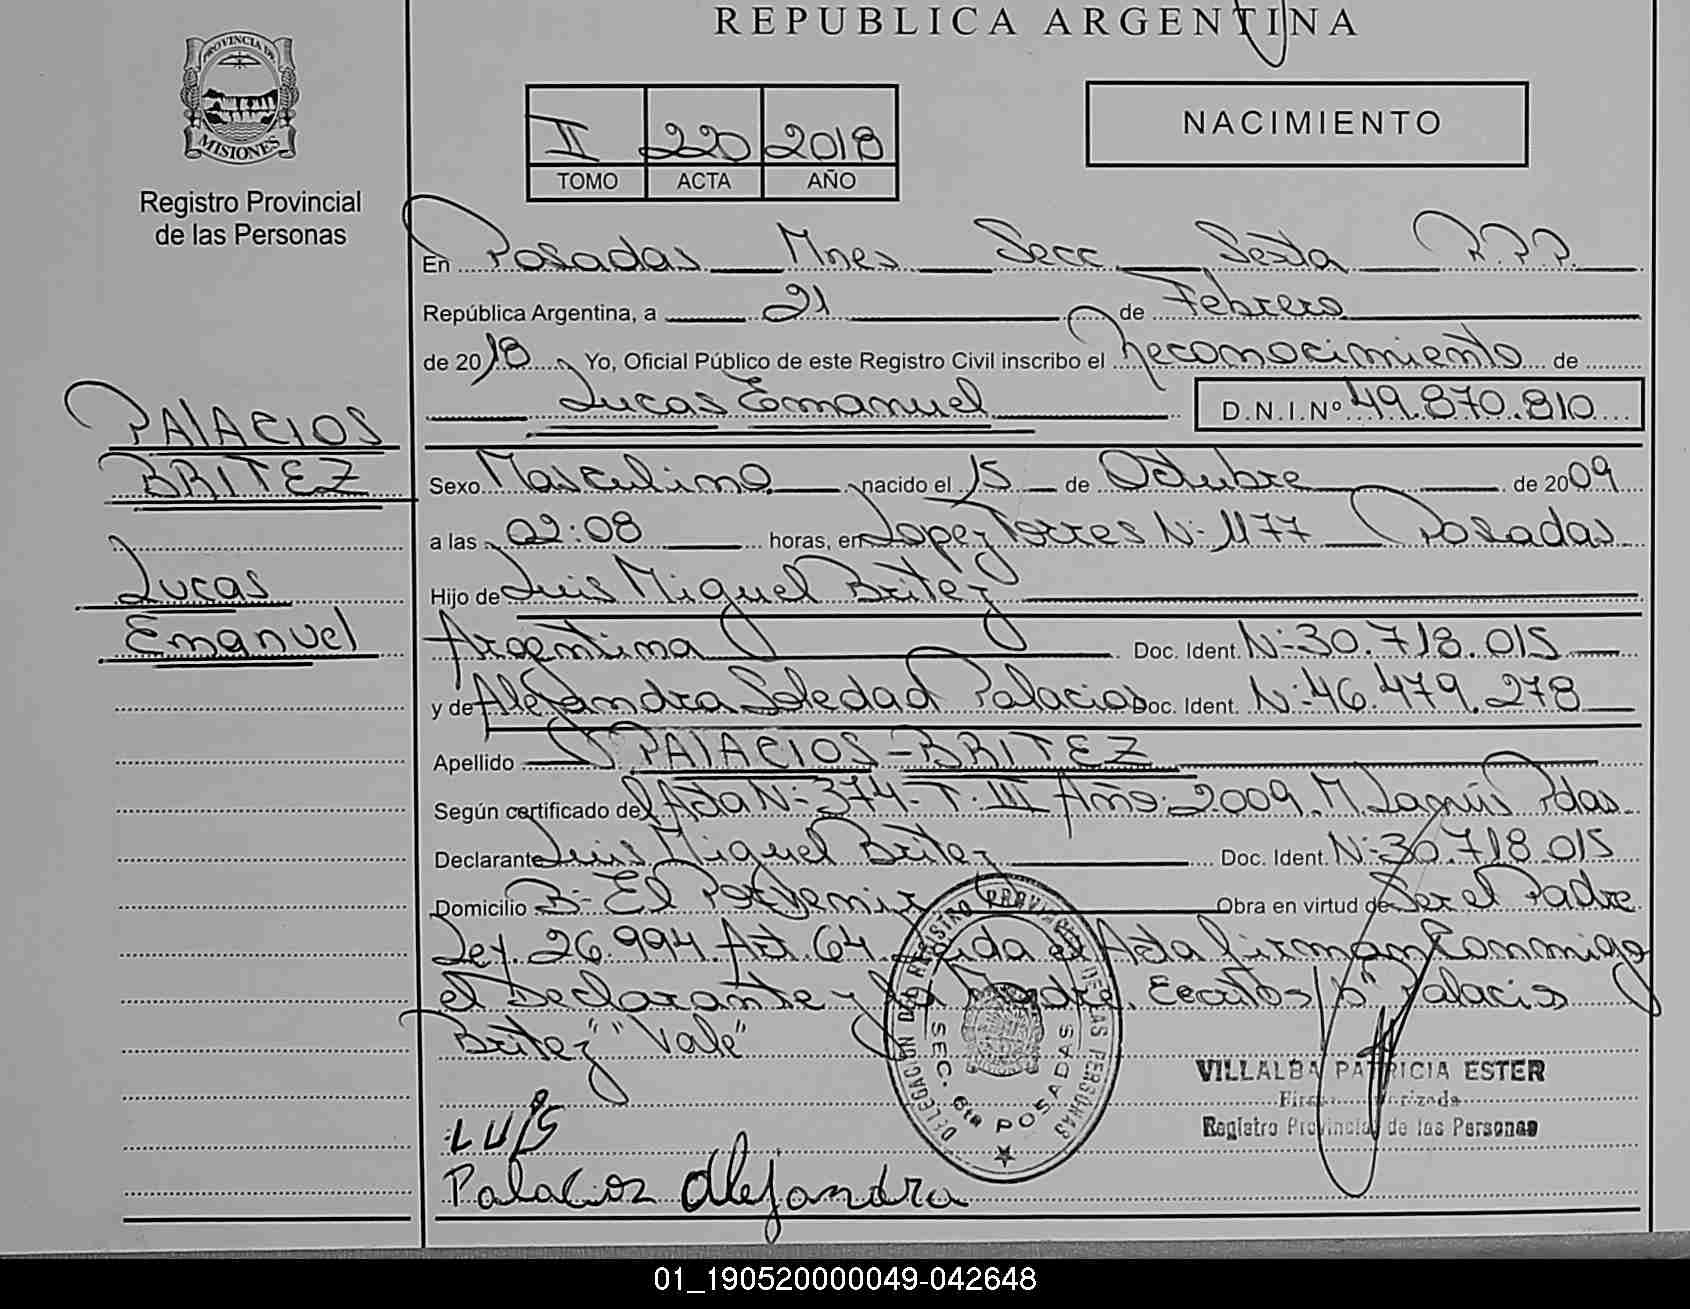 REPUBLICA ARGENTINA
PROVINCIA DE
MISIONES
Registro Provincial
de las Personas
II 220 2018
TOMO ACTA AÑO
NACIMIENTO
En Posadas Mnes Secc Sexta R.P.P.
República Argentina, a 21 de Febrero
de 2018 Yo, Oficial Público de este Registro Civil inscribo el Reconocimiento de
Lucas Emanuel D.N.I.Nº 49.870.810
PALACIOS
BRITEZ
Lucas
Emanuel
Sexo Masculino nacido el 15 de Octubre de 2009
a las 02:08 horas, en Lopez Torres N: 1177 Posadas
Hijo de Luis Miguel Britez
Argentina Doc. Ident. N: 30.718.015
y de Alejandra Soledad Palacios Doc. Ident. N: 46.479.278
Apellido PALACIOS-BRITEZ
Según certificado del Acta N: 374- T: III Año: 2009. M. Lanús Pdas
Declarante Luis Miguel Britez Doc. Ident. N: 30.718.015
Domicilio B: El Porvenir Obra en virtud de Ser el Padre
Ley. 26.994. Art. 64. Leida el Acta firman Conmigo
el Declarante y la Madre. Escritos/ "Palacios
Britez" "Vale"
DELEGACION DEL REGISTRO PROVINCIAL DE LAS PERSONAS
SEC. 6ta POSADAS
VILLALBA PATRICIA ESTER
Firma Autorizada
Registro Provincial de las Personas
LUIS
Palacios Alejandra
01_190520000049-042648